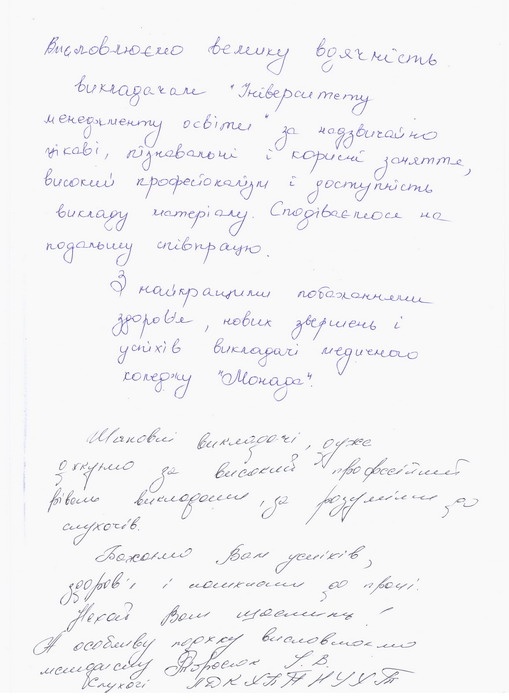 Висловлюємо велику вдячність
викладачам "Університету
менеджменту освіти" за надзвичайно
цікаві, пізнавальні і корисні заняття,
високий професіоналізм і доступність
викладу матеріалу. Сподіваємося на
подальшу співпрацю.
З найкращими побажаннями
здоров'я, нових звершень і
успіхів викладачі медичного
коледжу "Монада".
Шановні викладачі, дуже
дякуємо за високий професійний
рівень викладання, за розуміння до
слухачів.
Бажаємо Вам успіхів,
здоров'я і наснаги до праці.
Нехай Вам щастить!
А особливу подяку висловлюємо
Слухачі